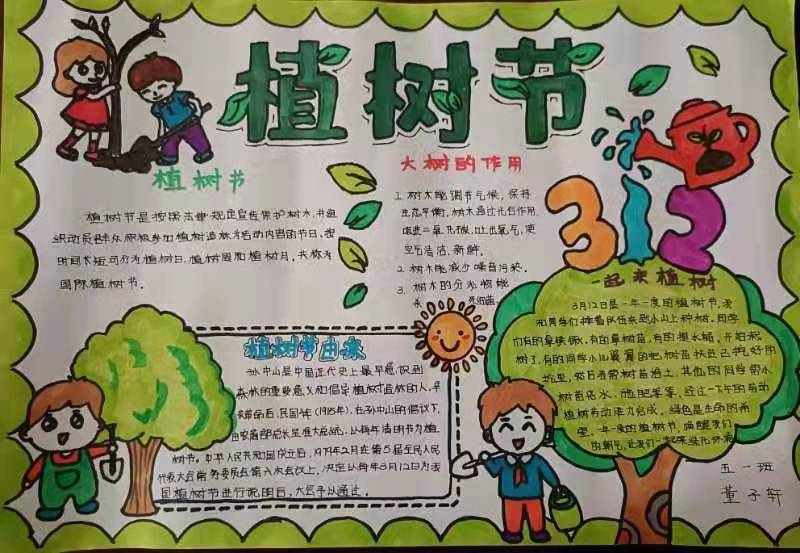 植树节
312
植树节
植树节是按照法律规定宣传保护树木,并组
织动员群众积极参加植树造林为活动内容的节日,按
时间长短可分为植树日、植树周和植树月,共称为
国际植树节。
大树的作用
1. 树木能调节气候,保持
生态平衡,树木通过光合作用
吸进二氧化碳,吐出氧气,使
空气清洁、新鲜。
2. 树木能减少噪音污染。
3. 树木的分泌物能
杀死细菌
植树节由来
孙中山是中国近代史上最早意识到
森林的重要意义和倡导植树造林的人,辛
亥革命后,民国4年(1915年),在孙中山的倡议下,
大总统,以每年清明节为植
树节。中华人民共和国成立后,1979年2月在第5届全国人民
代表大会常务委员会第六次会议上,决定以每年3月12日为我
国植树节进行说明后,大会予以通过。
一起来植树
3月12日是一年一度的植树节,我
和同学们排着队伍来到小山上种树。同学
们有的拿铁锹,有的拿树苗,有的提水桶,开始栽
树了,有的同学小心翼翼的把树苗扶进已挖好的
坑里,然后为带树苗培土,其他的同学带小
树苗浇水、施肥等等,经过一下午的劳动
植树劳动活力完成,绿色是生命的希
望,一年一度的植树节,唤醒我们
的朝气,让我们一起来绿化环境
五一班
董子轩